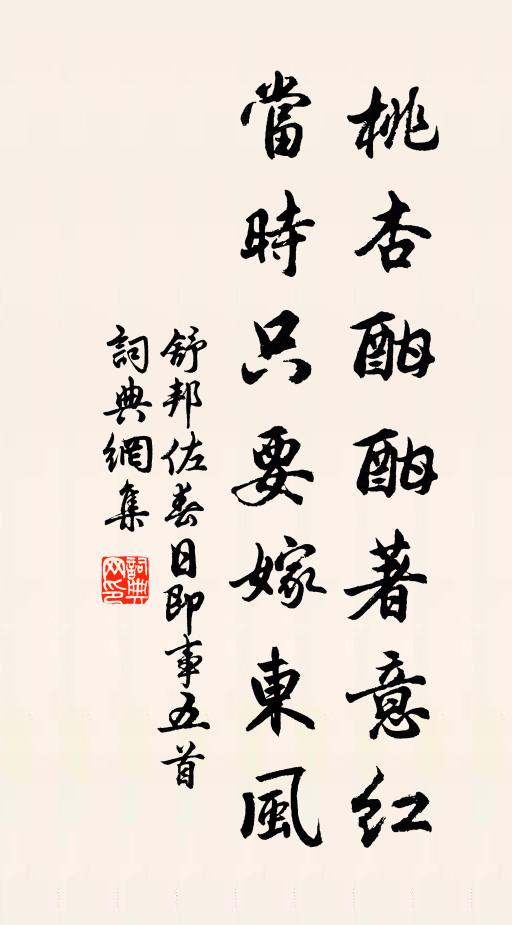 桃杏酣酣著意紅
當時只要嫁東風
舒邦佐春日即事五首
詞典網集
詞典网印